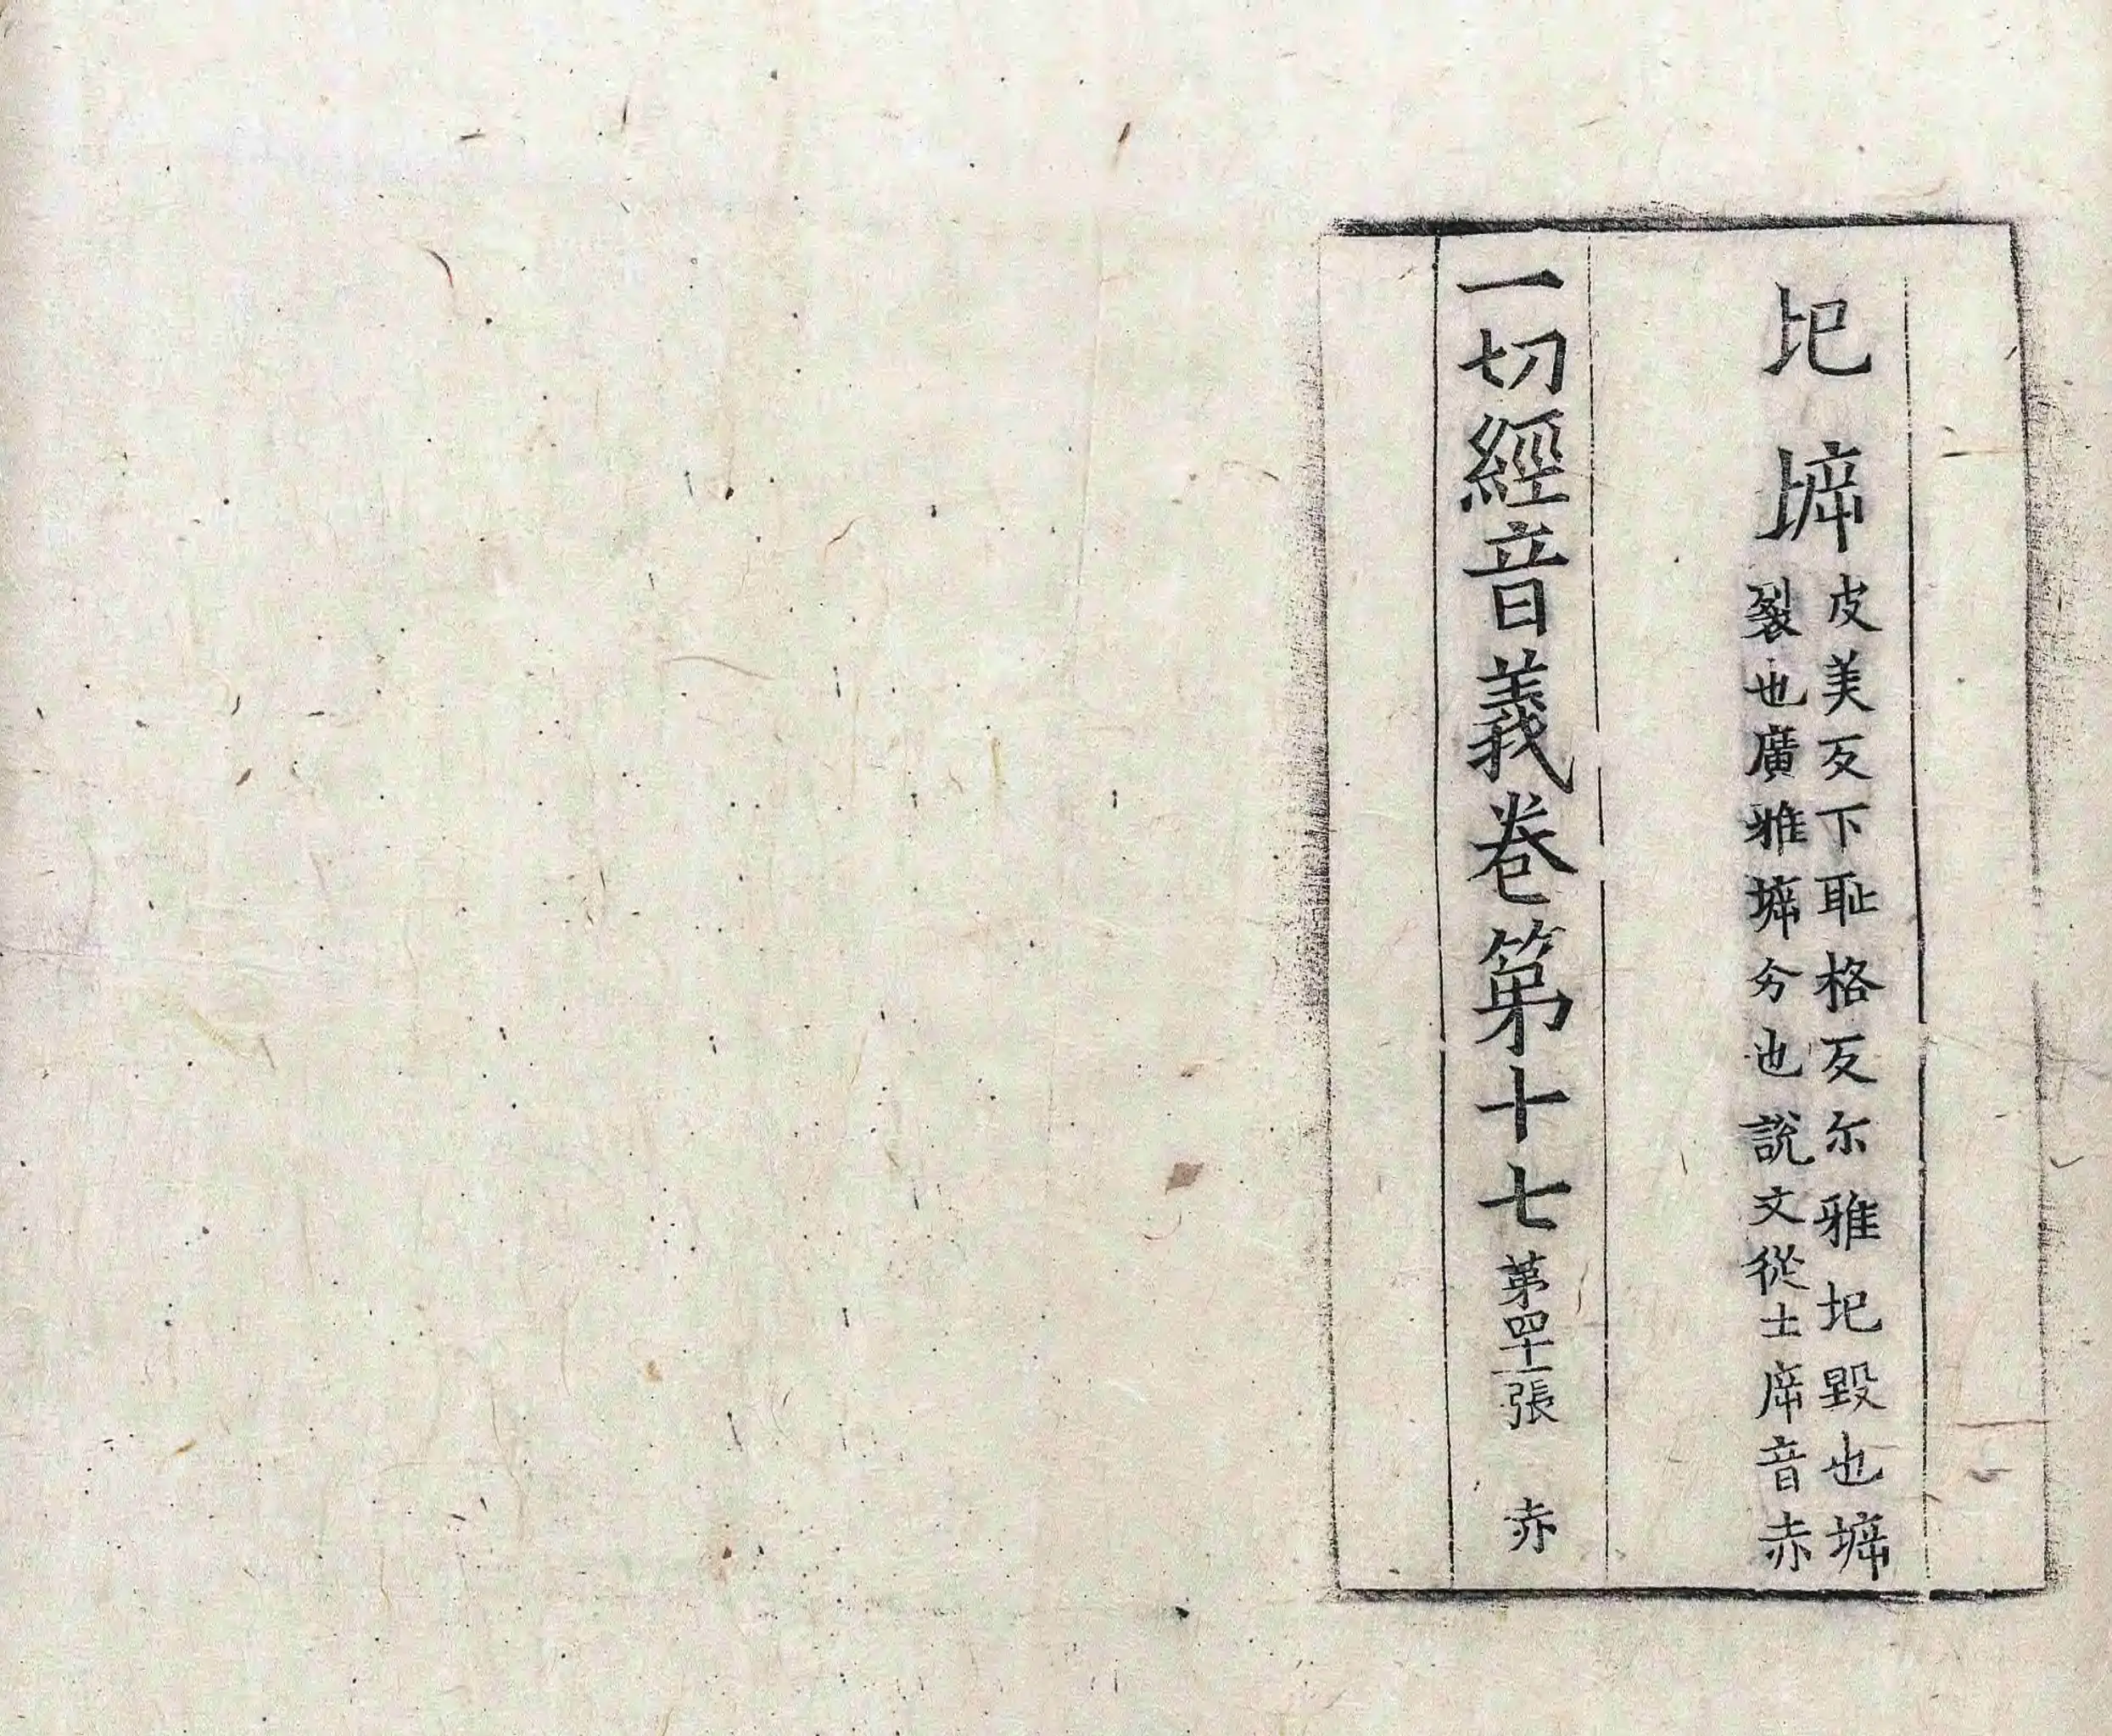 圯𡍩
皮美反下耻格反尔雅圯毀也𡍩
裂也廣雅𡍩分也說文從土㡿音赤
一切經音義卷第十七 第四十一張 赤